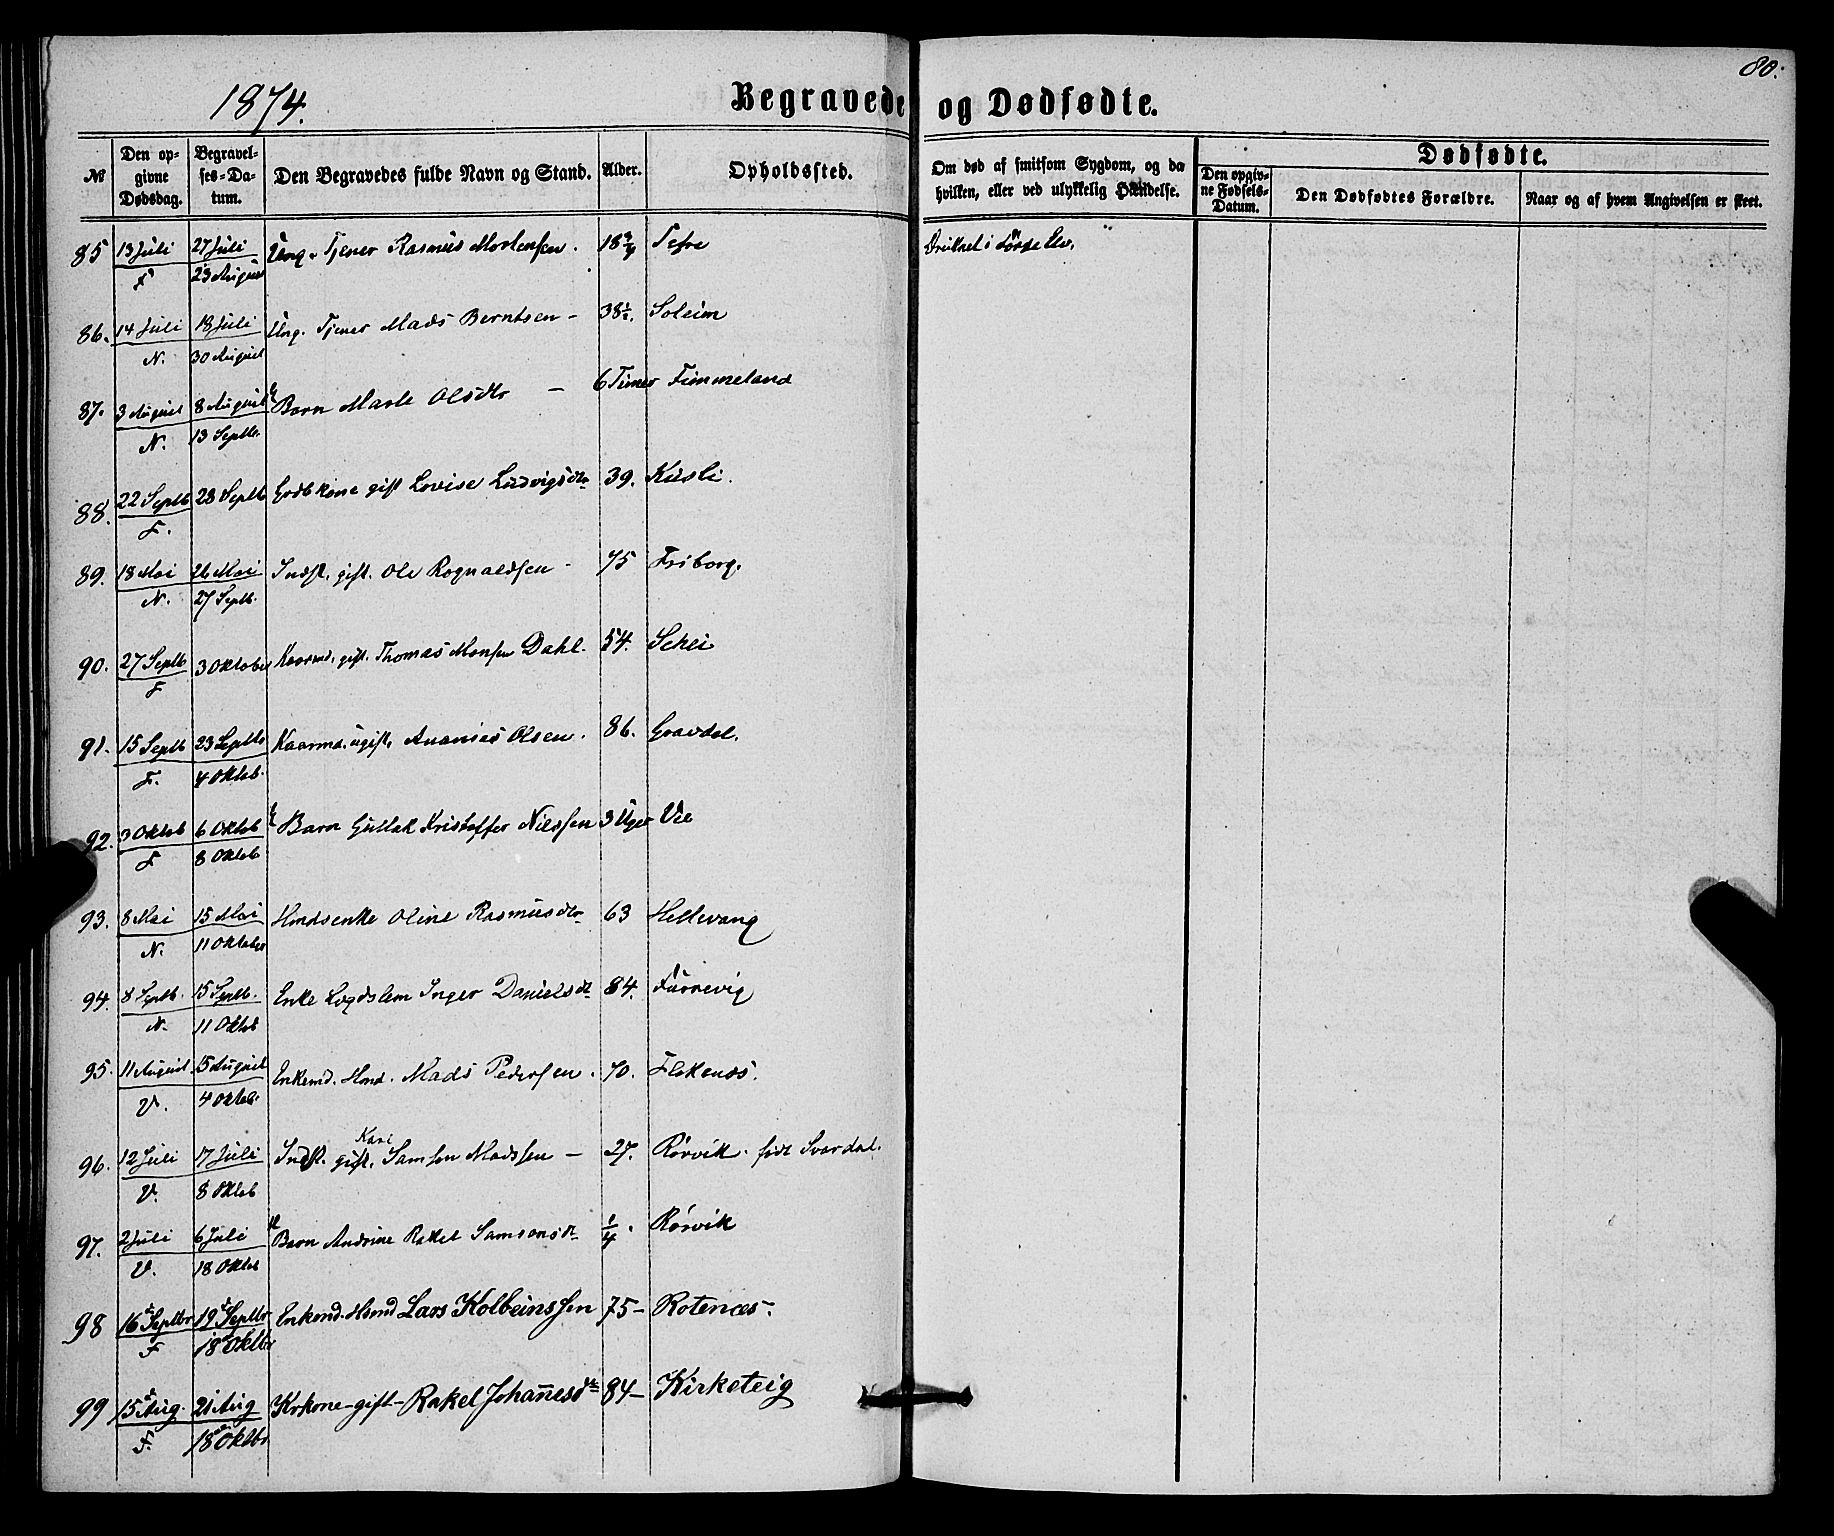 80.
1874.
Begravede og Dødfødte.
№ Den opgivne Dødsdag. Begravelses-Datum. Den Begravedes fulde Navn og Stand. Alder. Opholdssted. Om død af smitsom Sygdom, og da hvilken, eller ved ulykkelig Hændelse. Dødfødte.
Den opgivne Fødsels-Datum. Den Dødfødtes Forældre. Naar og af hvem Angivelsen er skeet.
85 13 Juli 27 Juli Ung. Tjener Rasmus Mortensen. 18 3/4 Tefre Druknet i Førde Elv.
F 23 August
86. 14 Juli 18 Juli Ung. Tjener Mads Berntsen - 38 1/2. Soleim
N. 30 August
87. 3 August 8 August Barn Marte Olsdtr - 6 Timer Fimmeland
N. 13 Septbr.
88. 22 Septb 28 Septb gift Lovise Ludvigsdtr 39. Kusli.
F.
89. 18 Mai 26 Mai Indst. gift. Ole Rognaldsen - 75 Friborg.
N. 27 Septb.
90. 27 Septb 3 Oktober Kaarmd. gift. Thomas Monsen Dahl. 54. Schei
F
91. 15 Septb 23 Septb Kaarmd. ugift. Ananias Olsen. 86. Gravdal.
F. 4 Oktob.
92. 3 Oktob 6 Oktob Barn Gullak Kristoffer Nilssen 3 Uger Vie
F 8 Oktob
93. 8 Mai 15 Mai Hmdsenke Oline Rasmusdtr 63 Hellevang
N. 11 Oktober
94. 8 Septb. 15 Septb. Enke Lægdslem Inger Danielsdtr 84. Furrevig
N. 11 Oktob
95. 11 August 15 August Enkemd. Hmd. Mads Pedersen. 70. Flokenæs.
V. 4 Oktob.
Kari
96. 12 Juli 17 Juli Indst. gift. Samson Madssen - 27. Rørvik. født Svardal.
V. 8 Oktob
97. 2 Juli 6 Juli Barn Andrine Rakel Samsonsdtr 1/4. Rørvik
V. 18 Oktob
98 16 Septbr 19 Septbr Enkemd. Hmd Lars Kolbeinssen 75- Rotenæs.
F 18 Oktbr
99 15 Aug. 21 Aug Krkone-gift-Rakel Johannesdtr 84- Kirketeig
F. 18 Oktbr